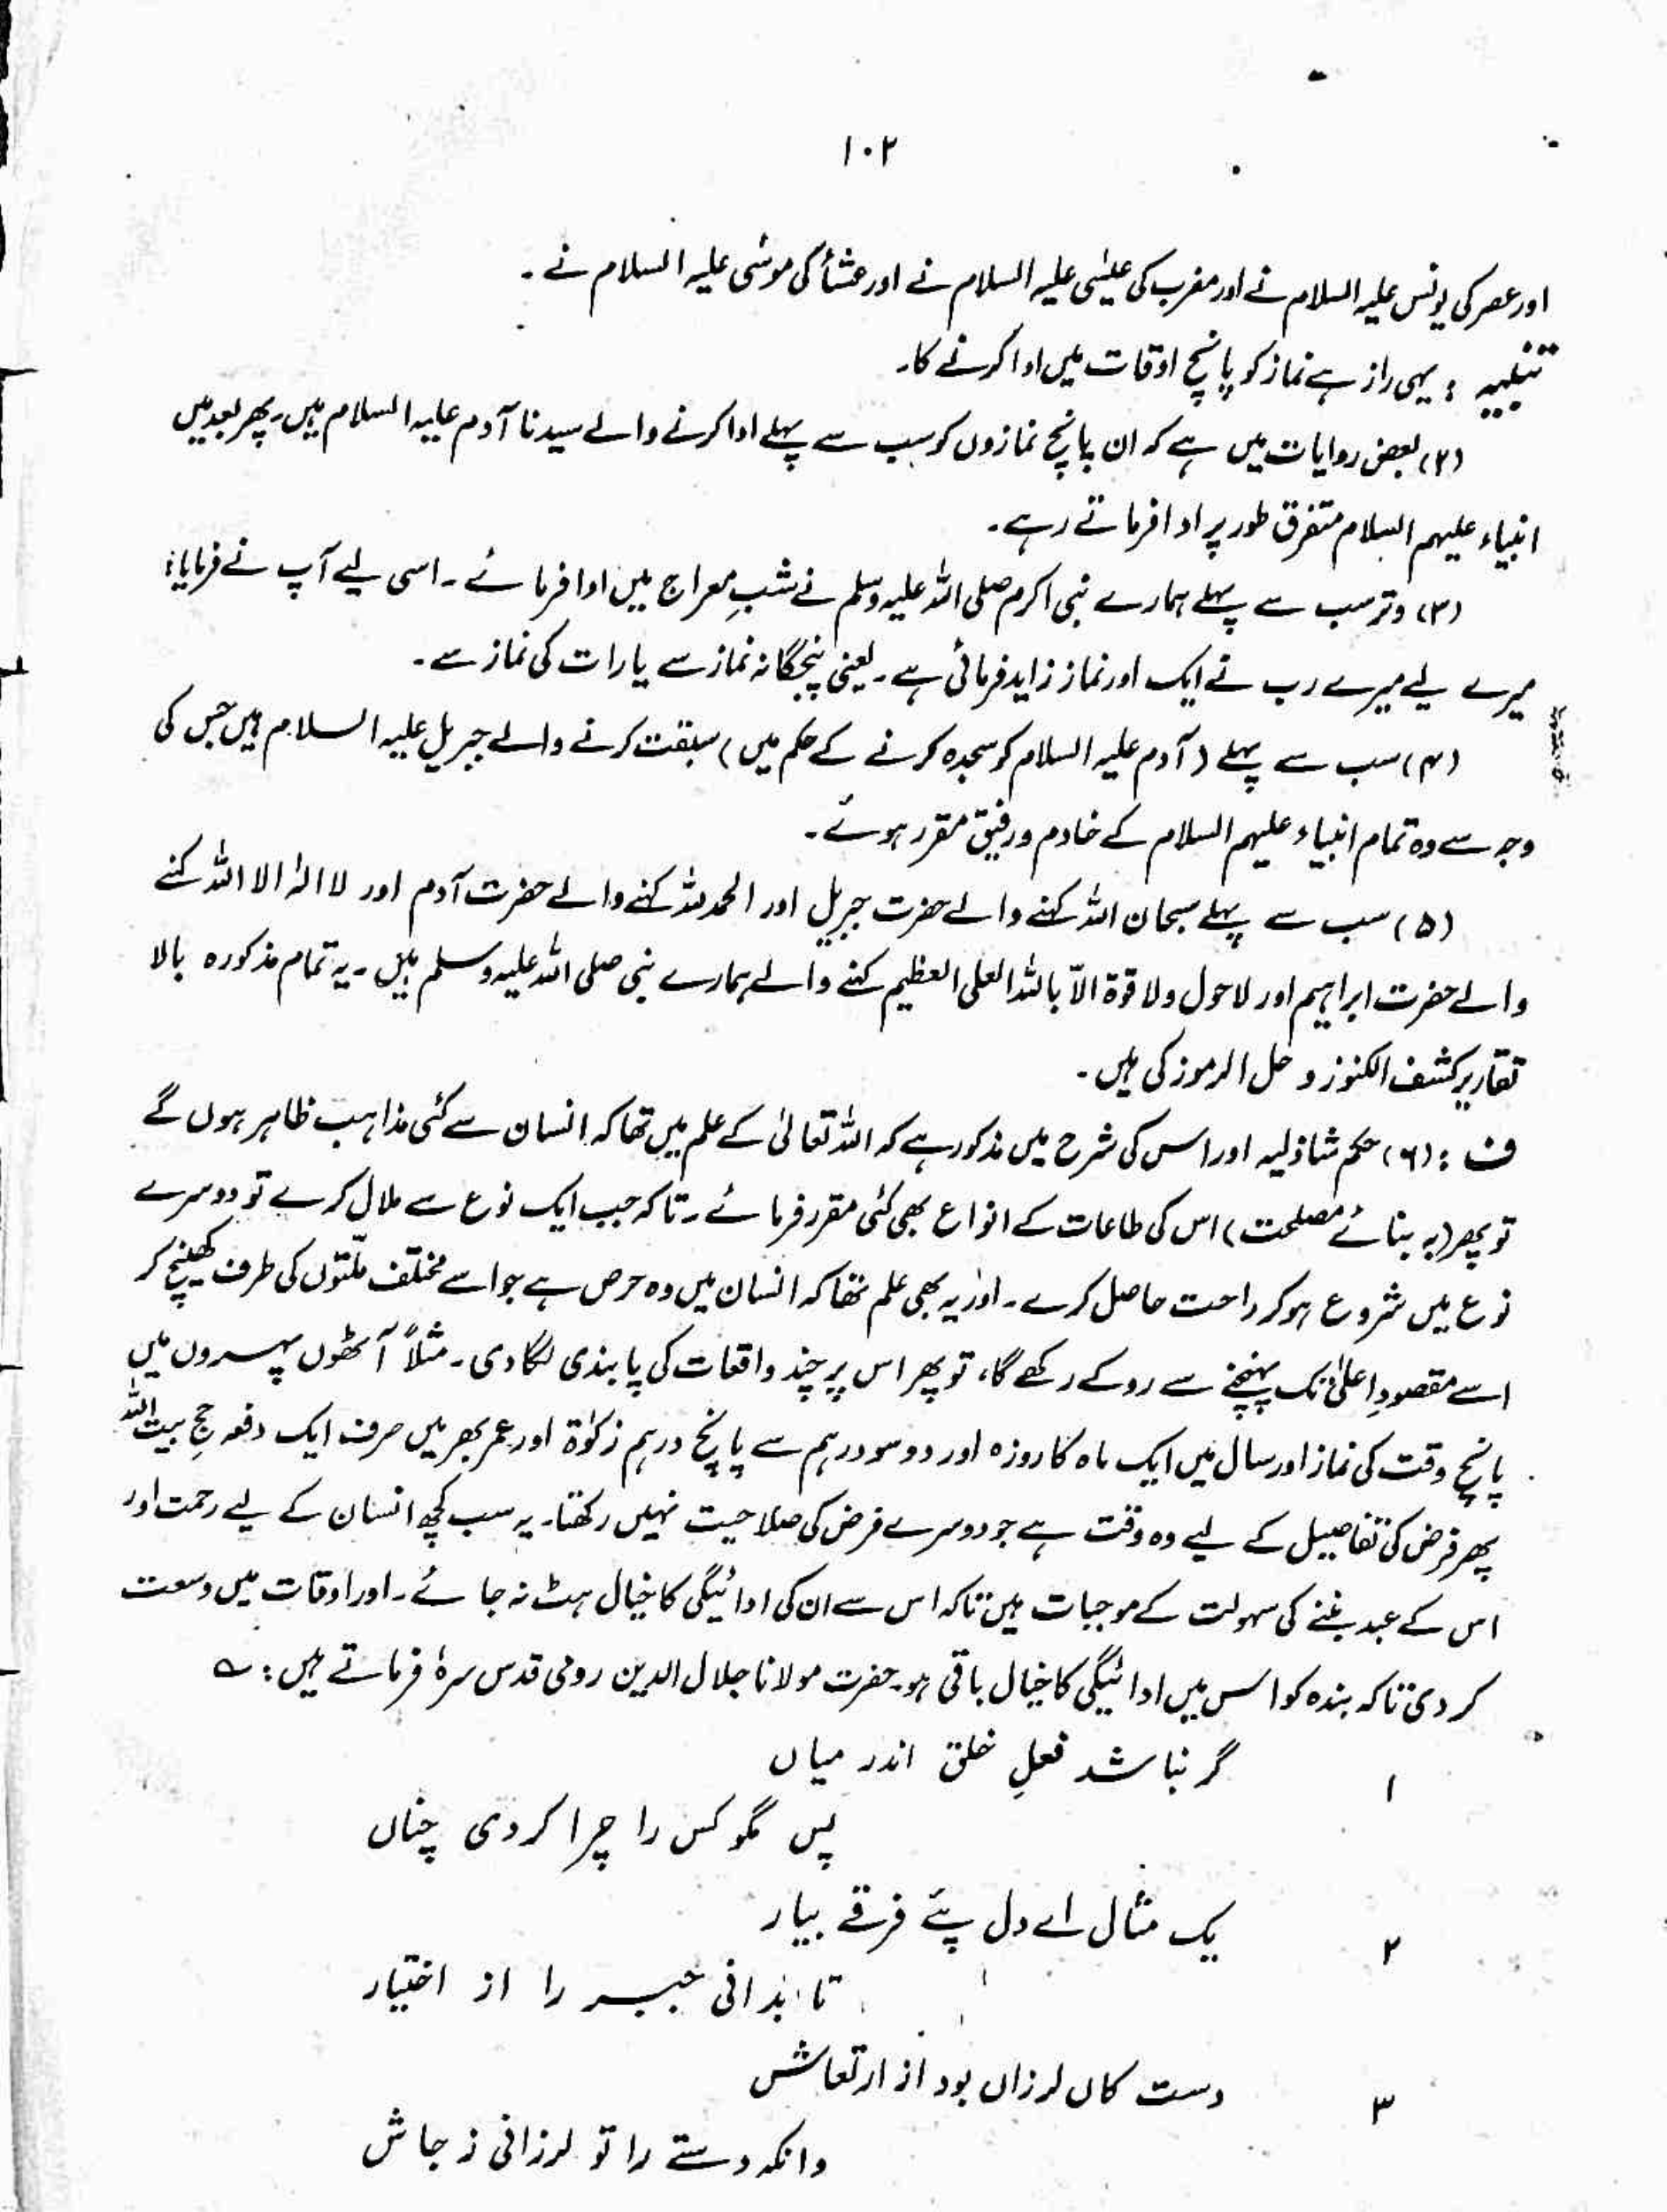 ۱۰۲
اور عصر کی یونس علیہ السلام نے اور مغرب کی عیسٰی علیہ السلام نے اور عشأ کی موسٰی علیہ السلام نے ۔
تنبیہ : یہی راز ہے نماز کو پانچ اوقات میں ادا کرنے کا۔
(۲) بعض روایات میں ہے کہ ان پانچ نمازوں کو سب سے پہلے ادا کرنے والے سیدنا آدم علیہ السلام ہیں۔ پھر بعد میں
انبیاء علیہم السلام متفرق طور پر ادا فرماتے رہے ۔
(۳) وتر سب سے پہلے ہمارے نبی اکرم صلی اللہ علیہ وسلم نے شبِ معراج میں ادا فرمائے ۔ اسی لیے آپ نے فرمایا :
میرے لیے میرے رب نے ایک اور نماز زاید فرمائی ہے ۔ یعنی پنجگانہ نماز سے یا رات کی نماز سے ۔
(۴) سب سے پہلے ( آدم علیہ السلام کو سجدہ کرنے کے حکم میں ) سبقت کرنے والے جبریل علیہ السلام ہیں جس کی
وجہ سے وہ تمام انبیاء علیہم السلام کے خادم و رفیق مقرر ہوئے ۔
(۵) سب سے پہلے سبحان اللہ کہنے والے حضرت جبریل اور الحمد للہ کہنے والے حضرت آدم اور لا الٰہ الا اللہ کہنے
والے حضرت ابراہیم اور لاحول ولا قوۃ الاّ باللہ العلی العظیم کہنے والے ہمارے نبی صلی اللہ علیہ وسلم ہیں ۔ یہ تمام مذکورہ بالا
تقاریر کشف الکنوز و حل الرموز کی ہیں ۔
ف : (۶) حکم شاذلیہ اور اس کی شرح میں مذکور ہے کہ اللہ تعالیٰ کے علم میں تھا کہ انسان سے کئی مذاہب ظاہر ہوں گے
تو پھر (بہ بنائے مصلحت) اس کی طاعات کے انواع بھی کئی مقرر فرمائے ۔ تاکہ جب ایک نوع سے ملال کرے تو دوسرے
نوع میں شروع ہو کر راحت حاصل کرے ۔ اور یہ بھی علم تھا کہ انسان میں وہ حرص ہے جو اسے مختلف ملّتوں کی طرف کھینچ کر
اسے مقصودِ اعلیٰ تک پہنچنے سے روکے رکھے گا، تو پھر اس پر چند واقعات کی پابندی لگا دی ۔ مثلاً آٹھوں پہروں میں
پانچ وقت کی نماز اور سال میں ایک ماہ کا روزہ اور دو سو درہم سے پانچ درہم زکوٰۃ اور عمر بھر میں صرف ایک دفعہ حجِ بیت اللہ
پھر فرض کی تفاصیل کے لیے وہ وقت ہے جو دوسرے فرض کی صلاحیت نہیں رکھتا۔ یہ سب کچھ انسان کے لیے رحمت اور
اس کے عبد بننے کی سہولت کے موجبات ہیں تاکہ اس سے ان کی ادائیگی کا خیال ہٹ نہ جائے ۔ اور اوقات میں وسعت
کر دی تاکہ بندہ کو اس میں ادائیگی کا خیال باقی ہو۔ حضرت مولانا جلال الدین رومی قدس سرہٗ فرماتے ہیں : ؎
۱ گر نباشد فعلِ خلق اندر میاں
پس مگو کس را چرا کردی چناں
۲ یک مثال اے دل پئے فرقے بیار
تا بدانی جبر را از اختیار
۳ دست کاں لرزاں بود از ارتعاش
وانکہ دستے را تو لرزانی ز جاش